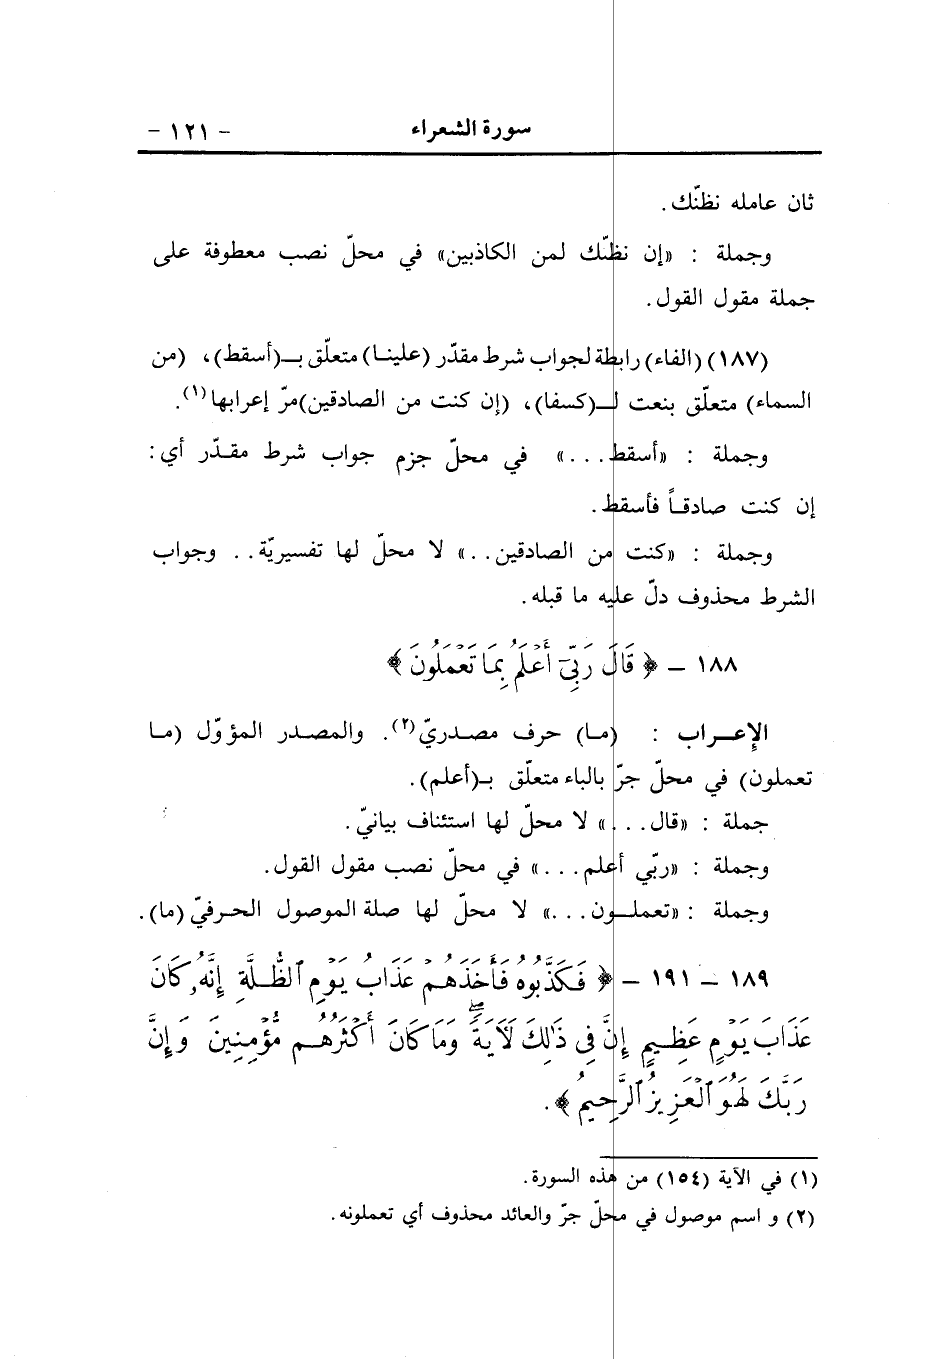 سورة الشعراء - ١٢١ -
ثان عامله نظنّك.
وجملة : «إن نظنّك لمن الكاذبين» في محلّ نصب معطوفة على
جملة مقول القول.
(١٨٧) (الفاء) رابطة لجواب شرط مقدّر (علينا) متعلّق بـ(أسقط)، (من
السماء) متعلّق بنعت لـ(كسفا)، (إن كنت من الصادقين)مرّ إعرابها(١).
وجملة : «أسقط...» في محلّ جزم جواب شرط مقدّر أي:
إن كنت صادقاً فأسقط.
وجملة : «كنت من الصادقين..» لا محلّ لها تفسيريّة.. وجواب
الشرط محذوف دلّ عليه ما قبله.
١٨٨ - ﴿ قَالَ رَبِّيٓ أَعْلَمُ بِمَا تَعْمَلُونَ ﴾
الإعراب : (ما) حرف مصدريّ(٢). والمصدر المؤوّل (ما
تعملون) في محلّ جرّ بالباء متعلّق بـ(أعلم).
جملة : «قال...» لا محلّ لها استئناف بيانيّ.
وجملة : «ربّي أعلم...» في محلّ نصب مقول القول.
وجملة : «تعملون...» لا محلّ لها صلة الموصول الحرفيّ (ما).
١٨٩ - ١٩١ - ﴿ فَكَذَّبُوهُ فَأَخَذَهُمْ عَذَابُ يَوْمِ ٱلظُّلَّةِ إِنَّهُۥ كَانَ
عَذَابَ يَوْمٍ عَظِيمٍ إِنَّ فِي ذَٰلِكَ لَآيَةً ۖ وَمَا كَانَ أَكْثَرُهُم مُّؤْمِنِينَ وَإِنَّ
رَبَّكَ لَهُوَ ٱلْعَزِيزُ ٱلرَّحِيمُ ﴾.
(١) في الآية (١٥٤) من هذه السورة.
(٢) و اسم موصول في محلّ جرّ والعائد محذوف أي تعملونه.